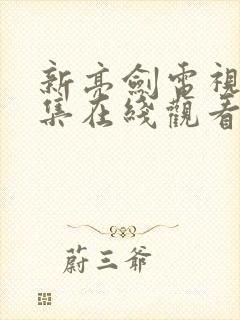 新亮劍電視
集在綫觀看
蔚三爺